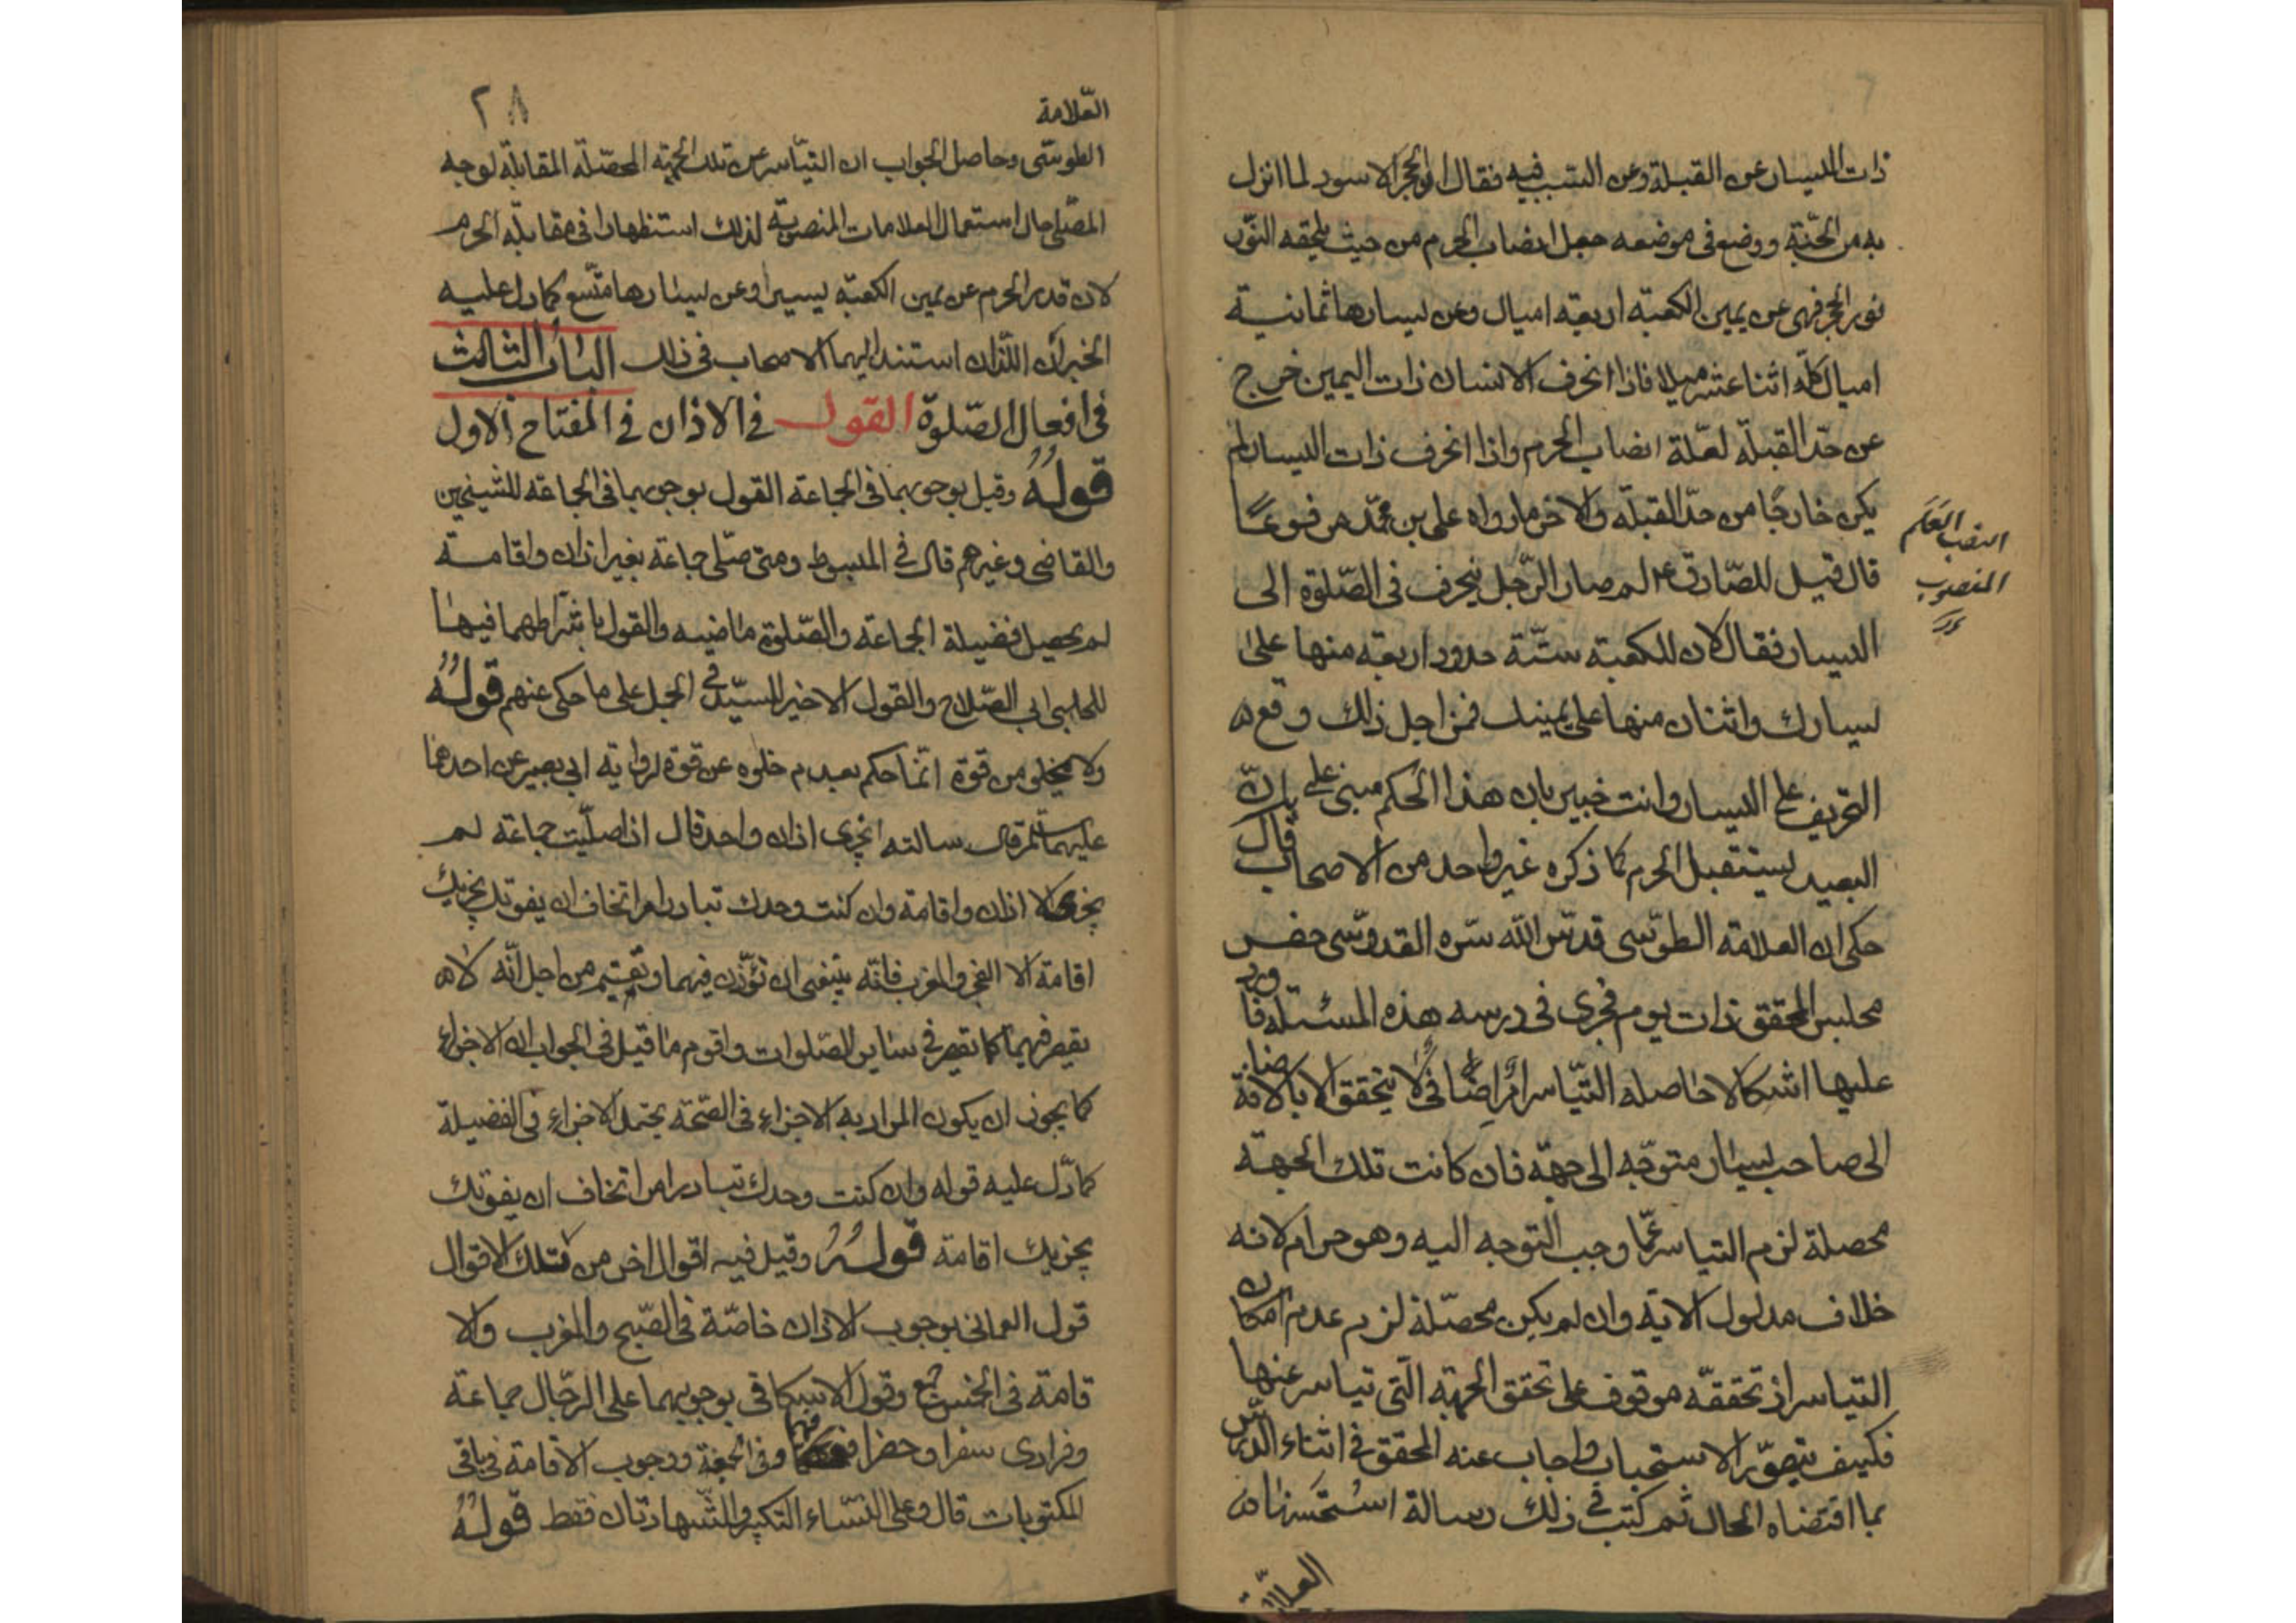 ذات اليسار عن القبلة وعن السبب فيه فقال ان الحجر الاسود لما انزل
به من الجنة ووضع فى موضعه جعل انصاب الحرم من حيث يلحقه النور
نور الحجر فهى عن يمين الكعبة اربعة اميال وعن يسارها ثمانية
اميال كله اثنا عشر ميلا فاذا انحرف الانسان ذات اليمين خرج
عن حد القبلة لعلة انصاب الحرم واذا انحرف ذات اليسار لم
يكن خارجًا من حد القبلة والاخر ما رواه على بن محمد مرفوعًا
قال قيل للصادق ع لم صار الرجل ينحرف فى الصلوة الى
اليسار فقال لان للكعبة ستة حدود اربعة منها على
يسارك واثنان منها على يمينك فمن اجل ذلك وقع
التحريف على اليسار وانت خبير بان هذا الحكم مبنى على ان
البعيد يستقبل الحرم كما ذكره غير واحد من الاصحاب قال
حكى ان العلامة الطوسى قدس الله سره القدوسى حضر
مجلس المحقق ذات يوم فجرى فى درسه هذه المسئلة فاورد
عليها اشكالا حاصله التياسر امر اضافى لا يتحقق الا بالاضافة
الى صاحب يسار متوجه الى جهة فان كانت تلك الجهة
محصلة لزم التياسر عما وجب التوجه اليه وهو حرام لانه
خلاف مدلول الاية وان لم يكن محصلة لزم عدم امكان
التياسر اذ تحققه موقوف على تحقق الجهة التى تياسر عنها
فكيف يتصور الاستحباب واجاب عنه المحقق فى اثناء الدرس
بما اقتضاه الحال ثم كتب فى ذلك رسالة استحسنها
العلامة
النصب العَلَم
المنصوب
٢٨
العلامة
الطوسى وحاصل الجواب ان التياسر عن تلك الجهة المحصلة المقابلة لوجه
المصلى حال استعمال العلامات المنصوبة لذلك استظهارا فى مقابلة الحرم
لان قدر الحرم عن يمين الكعبة يسير وعن يسارها متسع كما دل عليه
الخبران اللذان استند اليهما الاصحاب فى ذلك الباب الثالث
فى افعال الصلوة القول فى الاذان فى المفتاح الاول
قوله وقيل بوجوبهما فى الجماعة القول بوجوبهما فى الجماعة للشيخين
والقاضى وغيرهم قال فى المبسوط ومتى صلى جماعة بغير اذان واقامة
لم يحصل فضيلة الجماعة والصلوة ماضيه والقول باشتراطهما فيها
للحلبى ابى الصلاح والقول الاخير للسيد فى الجمل على ما حكى عنهم قوله
ولا يخلو من قوة انما حكم بعدم خلوه عن قوة لرواية ابى بصير عن احدهما
عليهما السلم قال سالته ايجزى اذان واحد قال اذا صليت جماعة لم
يجزى الا اذان واقامة وان كنت وحدك تبادر امرا تخاف ان يفوتك يجزيك
اقامة الا الفجر والمغرب فانه ينبغى ان تؤذن فيهما وتقيم من اجل انه لا
يقصر فيهما كما يقصر فى سائر الصلوات واقوم ما قيل فى الجواب ان الاجزاء
كما يجوز ان يكون المراد به الاجزاء فى الصحة يحتمل الاجزاء فى الفضيلة
كما دل عليه قوله وان كنت وحدك تبادر امرا تخاف ان يفوتك
يجزيك اقامة قوله وقيل فيه اقوال اخر من تلك الاقوال
قول العمانى بوجوب الاذان خاصة فى الصبح والمغرب والا
قامة فى الخمس جمع وقول الاسكافى بوجوبهما على الرجال جماعة
وفرادى سفرا وحضرا فيهما وفى الجمعة ووجوب الاقامة فى باقى
المكتوبات قال وعلى النساء التكبير والشهادتان فقط قوله